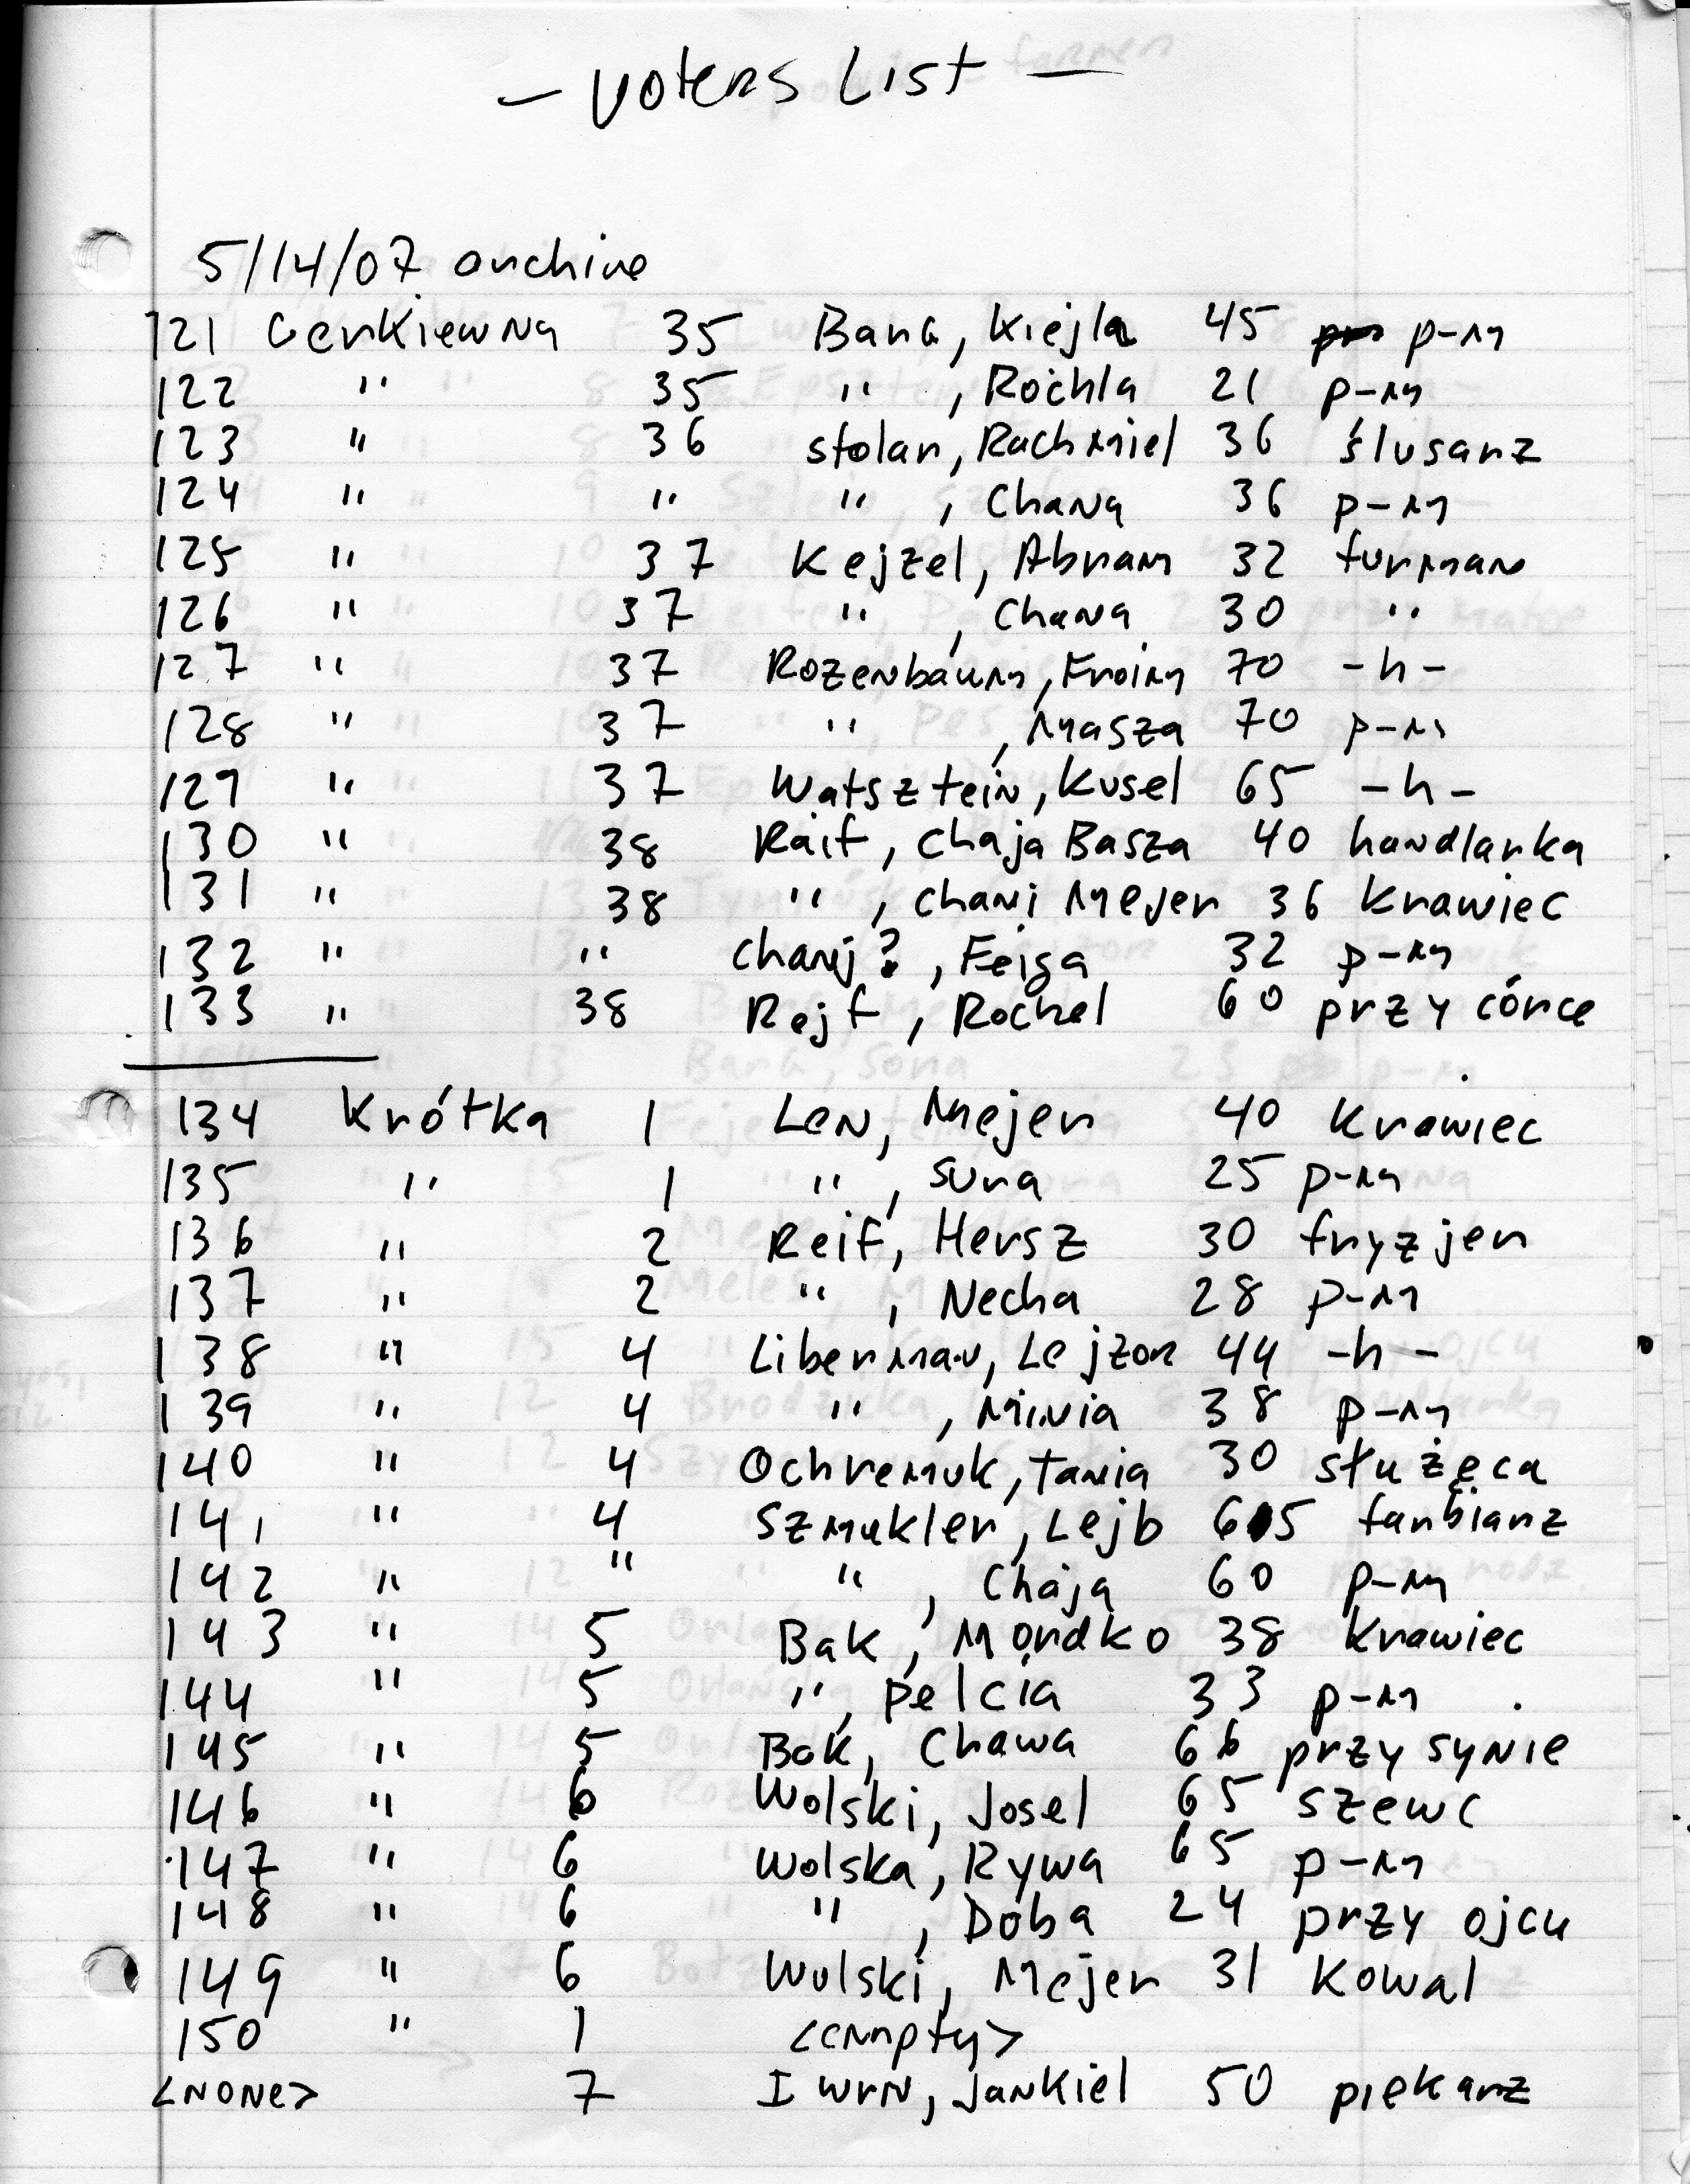 — Voters List —
5/14/07 archive
121 Cerkiewna 35 Bara, Kiejla 45 p-m
122 " 35 " , Rochla 21 p-m
123 " 36 Stolar, Rachmiel 36 ślusarz
124 " " " , Chana 36 p-m
125 " 37 Kejzel, Abram 32 furman
126 " 37 " , Chana 30 "
127 " 37 Rozenbaum, Froim 70 -h-
128 " 37 " , Masza 70 p-m
129 " 37 Watsztein, Kusel 65 -h-
130 " 38 Raif, Chaja Basza 40 handlarka
131 " 38 " , Chani Mejer 36 Krawiec
132 " " Chanj?, Feiga 32 p-m
133 " 38 Rejf, Rochel 60 przy córce
134 Krótka 1 Len, Mejer 40 Krawiec
135 " 1 " , Sura 25 p-m
136 " 2 Reif, Hersz 30 fryzjer
137 " 2 " , Necha 28 p-m
138 " 4 Liberman, Lejzor 44 -h-
139 " 4 " , Minia 38 p-m
140 " 4 Ochremuk, Tania 30 służęca
141 " 4 Szmukler, Lejb 65 farbiarz
142 " " " , Chaja 60 p-m
143 " 5 Bak, Mordko 38 Krawiec
144 " 5 " , Pelcia 33 p-m
145 " 5 Bak, Chawa 66 przy synie
146 " 6 Wolski, Josel 65 szewc
147 " 6 Wolska, Rywa 65 p-m
148 " 6 " , Doba 24 przy ojcu
149 " 6 Wolski, Mejer 31 Kowal
150 " 1 <empty>
<none> 7 Iwrn, Jankiel 50 piekarz